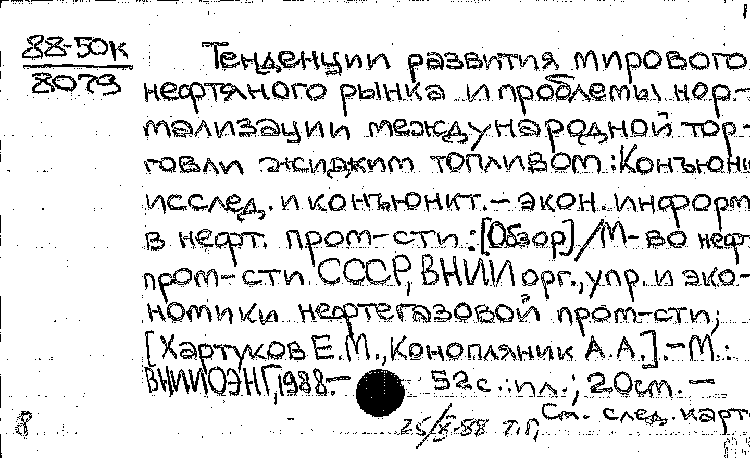 88-50к
8079
Тенденции развития мирового
нефтяного рынка и проблемы нор-
мализации международной тор-
говли жидким топливом: Конъюнк
исслед. и конъюнкт.-экон. информ
в нефт. пром-сти: [Обзор] / М-во нефт
пром-сти СССР, ВНИИ орг., упр. и эко-
номики нефтегазовой пром-сти;
[Хартуков Е.М., Конопляник А.А.]. - М.:
ВНИИОЭНГ, 1988. - 52с.: ил.; 20см. -
См. след. карт
8